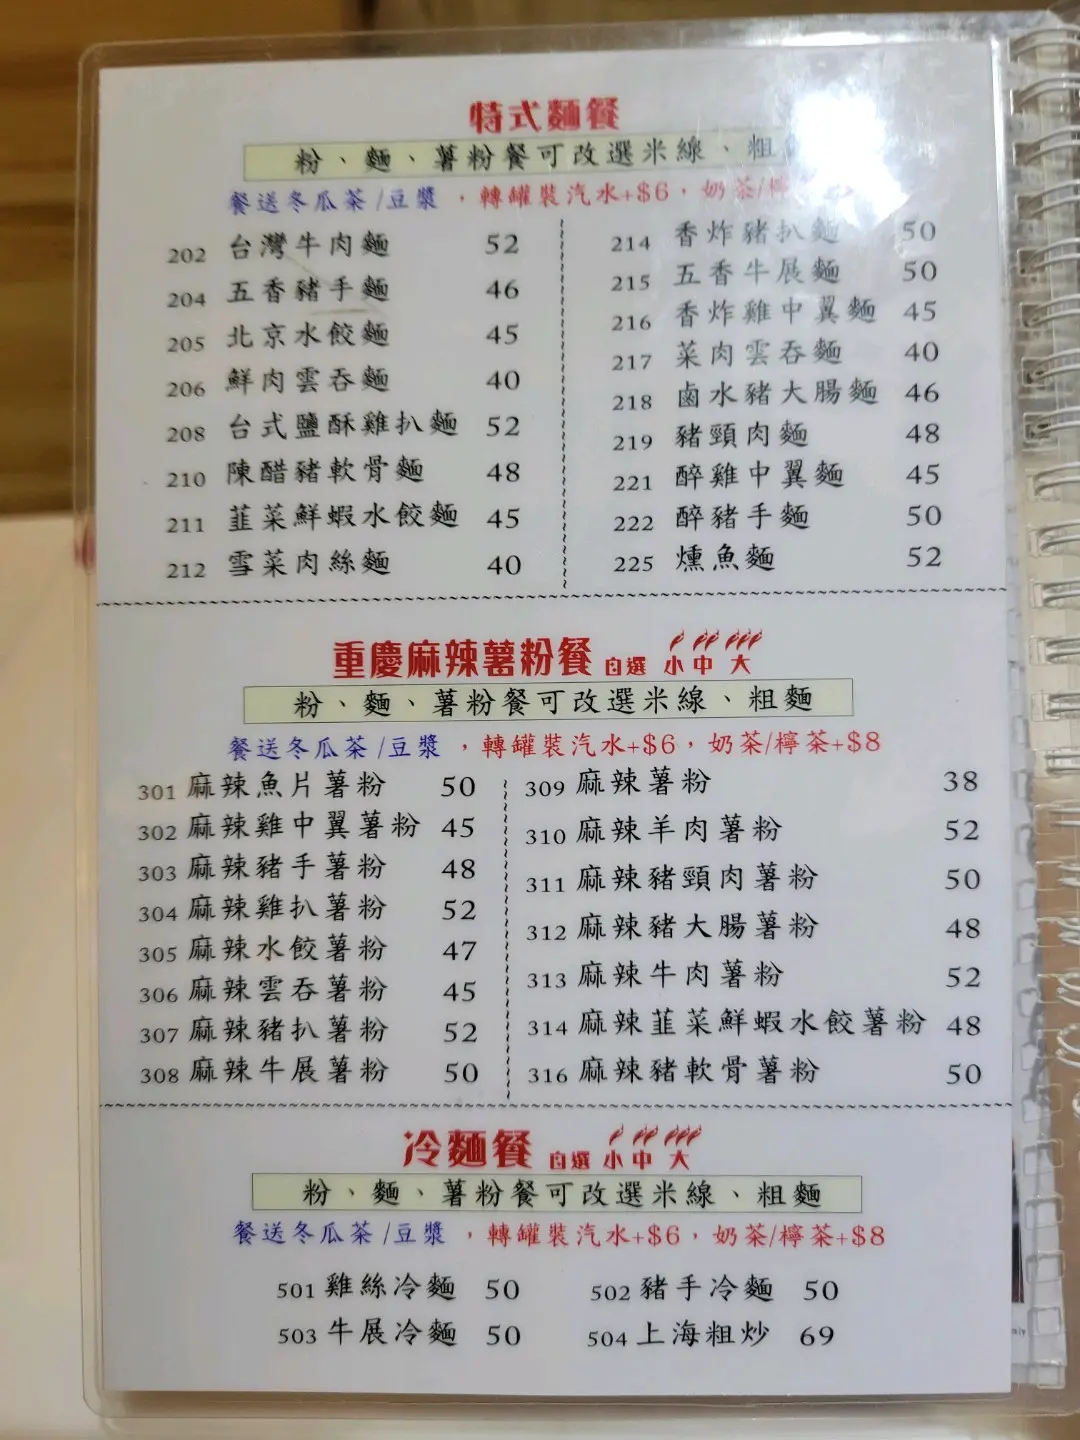 特式麵餐
粉、麵、薯粉餐可改選米線、粗
餐送冬瓜茶/豆漿，轉罐裝汽水+$6，奶茶/檸
202 台灣牛肉麵 52
204 五香豬手麵 46
205 北京水餃麵 45
206 鮮肉雲吞麵 40
208 台式鹽酥雞扒麵 52
210 陳醋豬軟骨麵 48
211 韮菜鮮蝦水餃麵 45
212 雪菜肉絲麵 40
214 香炸豬扒麵 50
215 五香牛展麵 50
216 香炸雞中翼麵 45
217 菜肉雲吞麵 40
218 鹵水豬大腸麵 46
219 豬頸肉麵 48
221 醉雞中翼麵 45
222 醉豬手麵 50
225 燻魚麵 52
重慶麻辣薯粉餐 自選 小 中 大
粉、麵、薯粉餐可改選米線、粗麵
餐送冬瓜茶/豆漿，轉罐裝汽水+$6，奶茶/檸茶+$8
301 麻辣魚片薯粉 50
302 麻辣雞中翼薯粉 45
303 麻辣豬手薯粉 48
304 麻辣雞扒薯粉 52
305 麻辣水餃薯粉 47
306 麻辣雲吞薯粉 45
307 麻辣豬扒薯粉 52
308 麻辣牛展薯粉 50
309 麻辣薯粉 38
310 麻辣羊肉薯粉 52
311 麻辣豬頸肉薯粉 50
312 麻辣豬大腸薯粉 48
313 麻辣牛肉薯粉 52
314 麻辣韮菜鮮蝦水餃薯粉 48
316 麻辣豬軟骨薯粉 50
冷麵餐 自選 小 中 大
粉、麵、薯粉餐可改選米線、粗麵
餐送冬瓜茶/豆漿，轉罐裝汽水+$6，奶茶/檸茶+$8
501 雞絲冷麵 50
502 豬手冷麵 50
503 牛展冷麵 50
504 上海粗炒 69